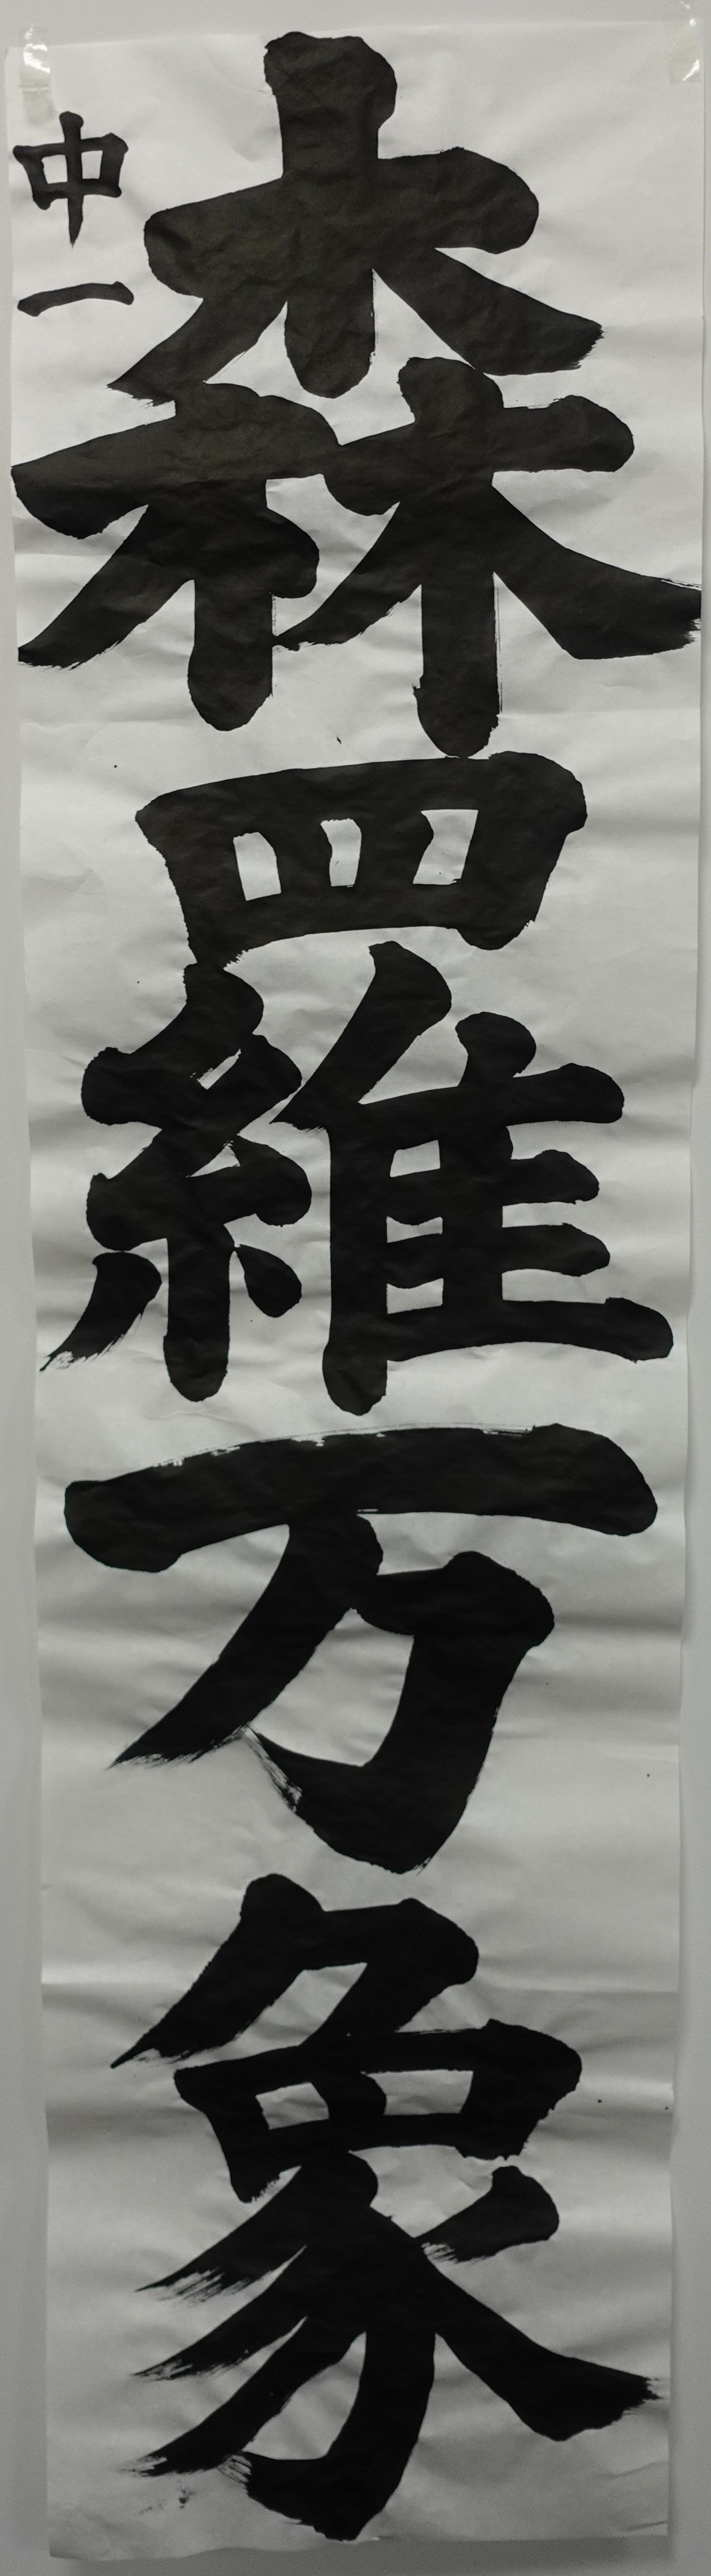 森羅万象
中一